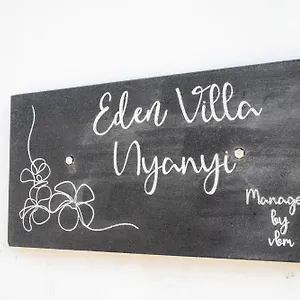 Eden Villa
Nyanyi
Manage
by
vbm